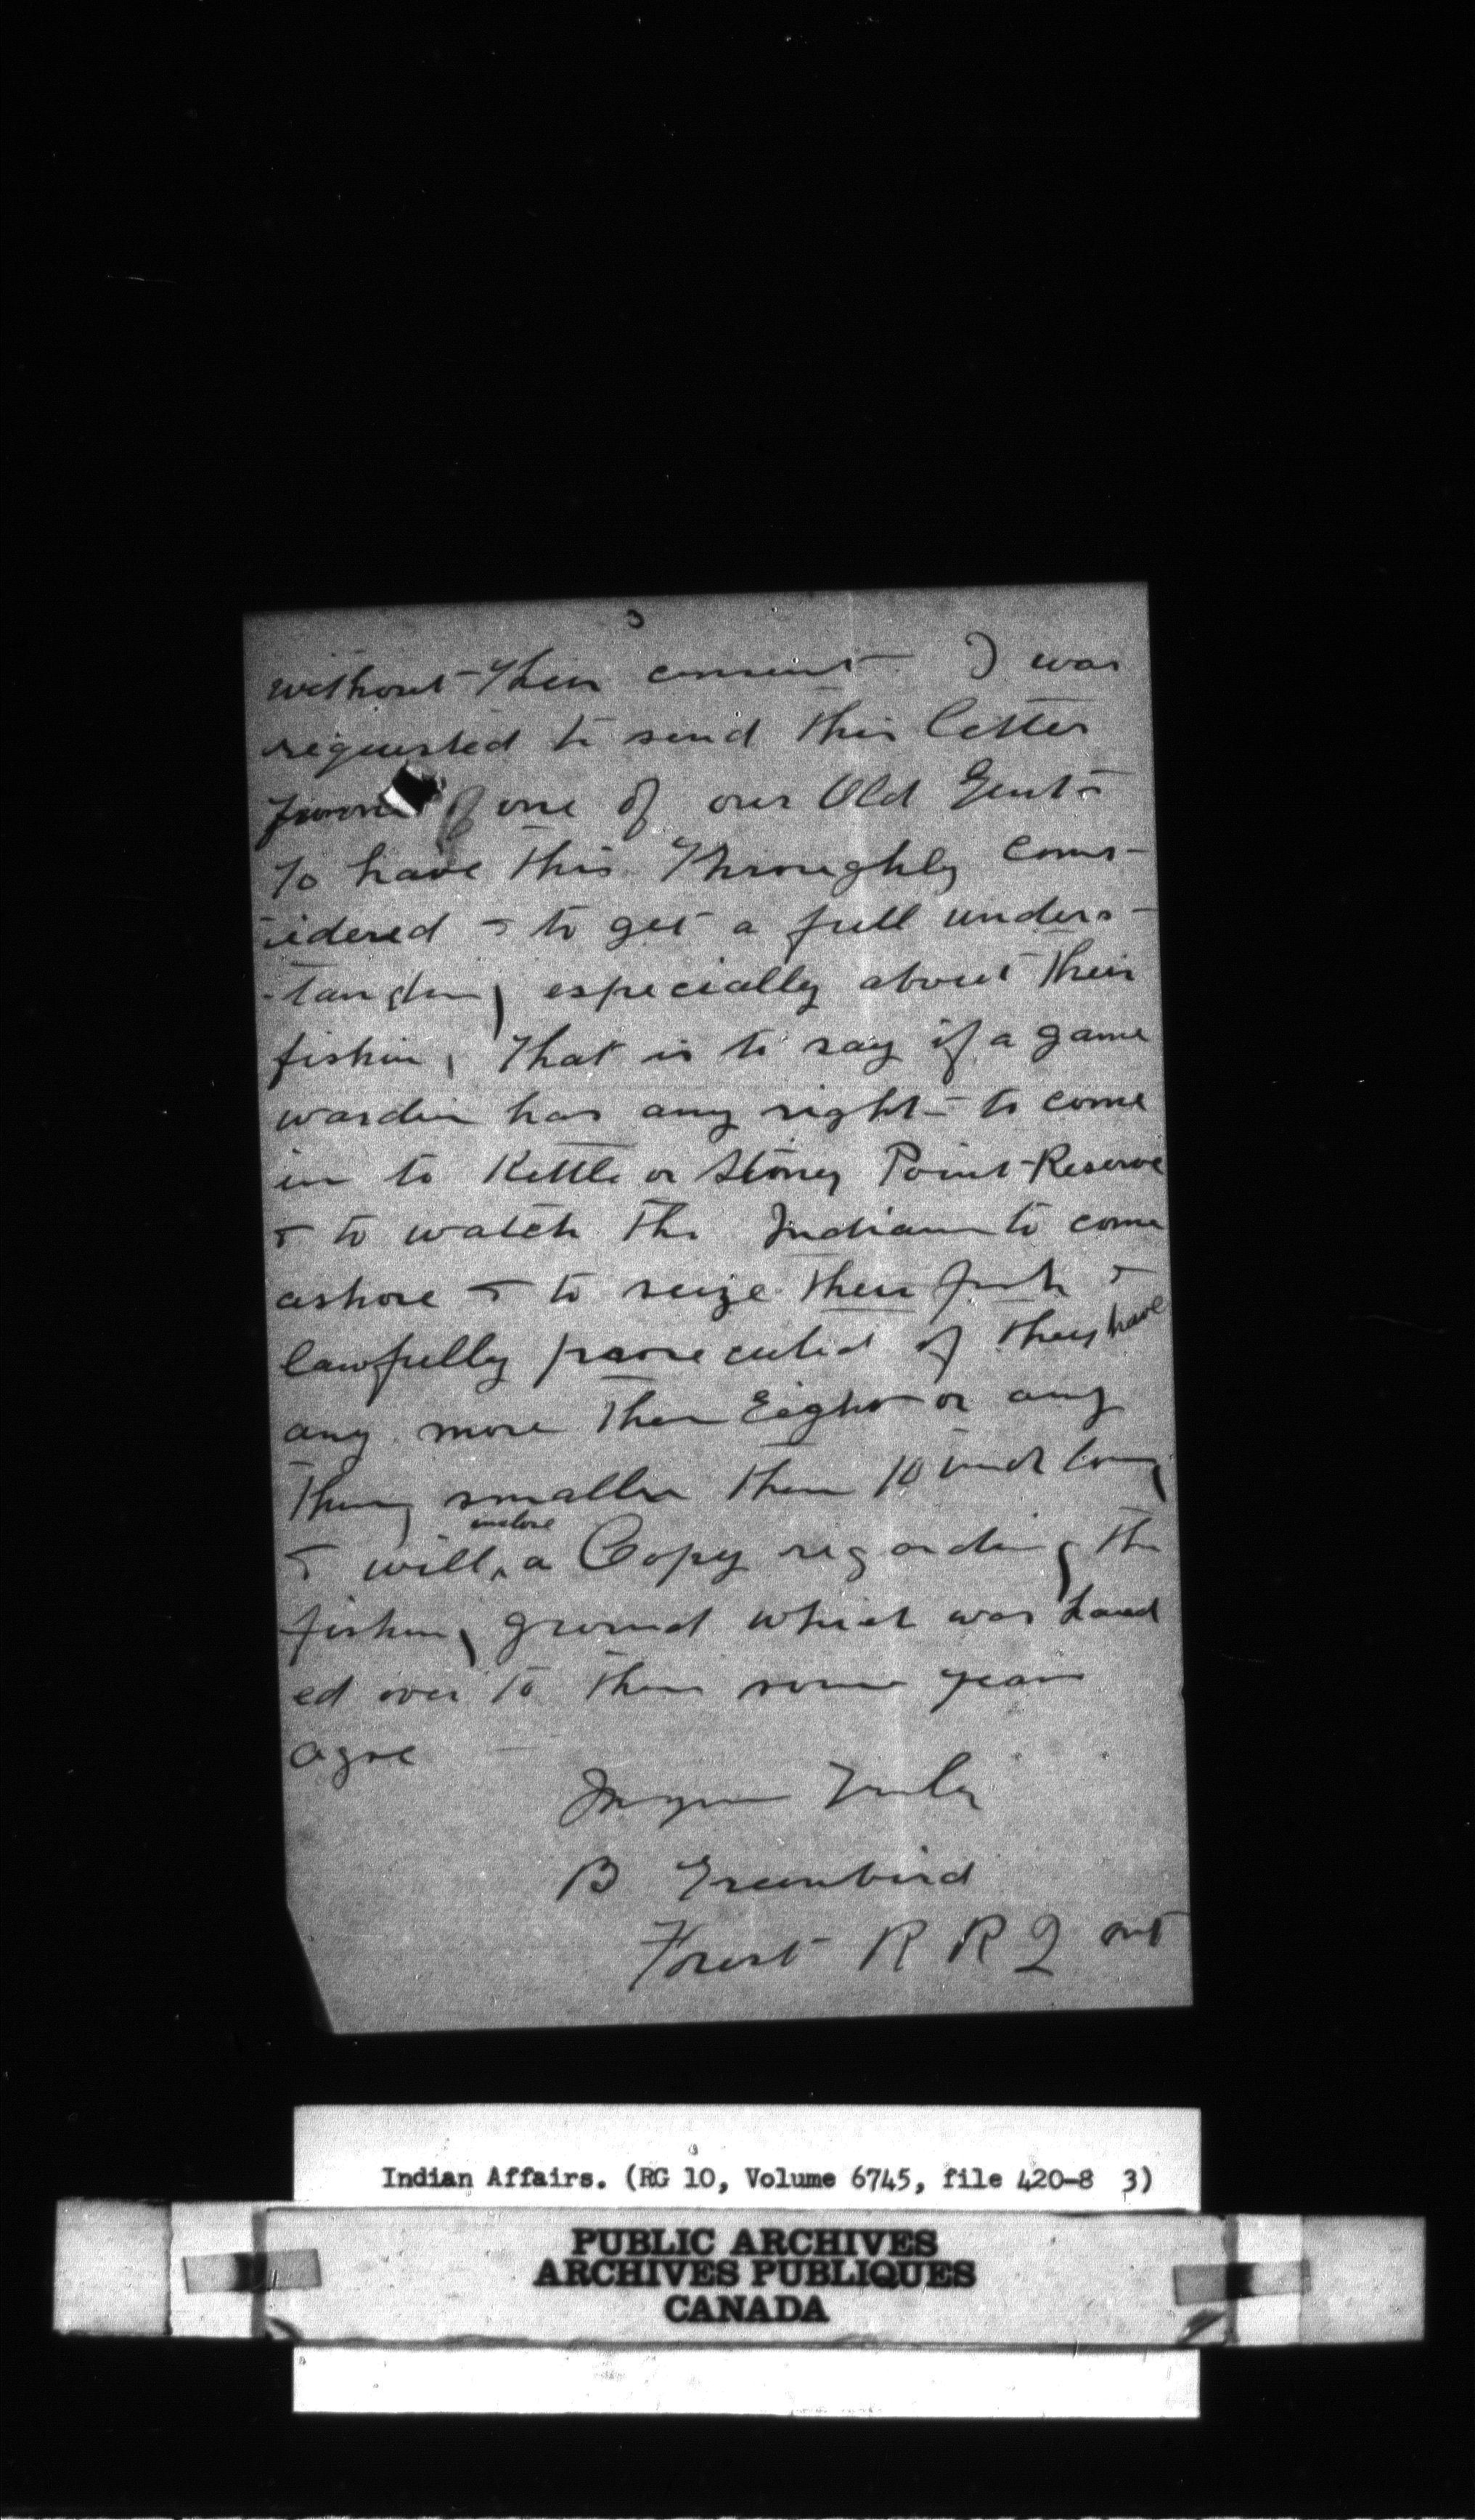 3
without their consent I was
requested to send this letter
from one of our Old Gents
To have this Throughly cons-
idered & to get a full unders-
-tanding especially about their
fishing, That is to say if a game
warden has any right to come
in to Kettle or Stoney Point Reserve
& to watch the Indians to come
ashore & to seize their fish &
lawfully prosecuted if they have
any more than Eight or any
Thing smaller than 10 inch long
& will enclose a Copy regarding the
fishing ground which was hand
ed over to them some years
agoe
Truly
B Greenbird
Forest R R 2 Ont
Indian Affairs. (RG 10, Volume 6745, file 420-8 3)
PUBLIC ARCHIVES
ARCHIVES PUBLIQUES
CANADA